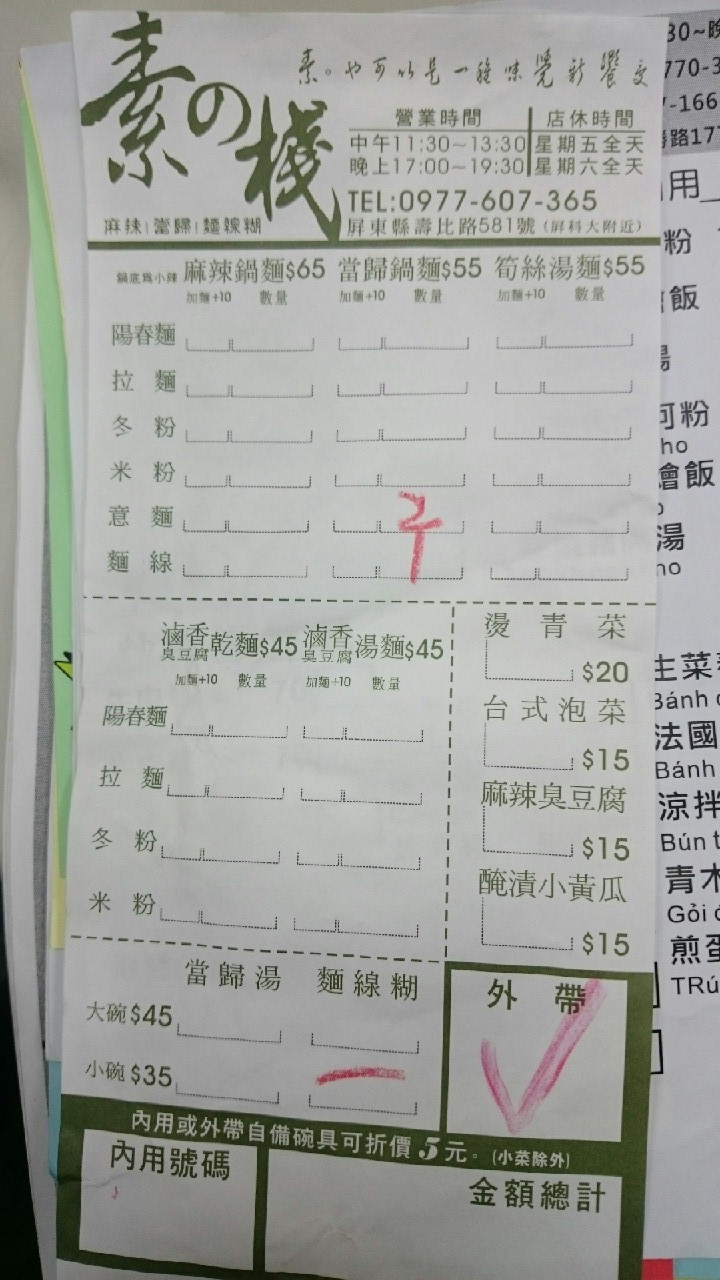 素の棧
素。也可以是一種味覺新饗宴
營業時間 店休時間
中午11:30~13:30 星期五全天
晚上17:00~19:30 星期六全天
TEL:0977-607-365
麻辣|當歸|麵線糊
屏東縣壽比路581號(屏科大附近)
鍋底為小辣 麻辣鍋麵$65 當歸鍋麵$55 筍絲湯麵$55
加麵+10 數量 加麵+10 數量 加麵+10 數量
陽春麵
拉麵
冬粉
米粉
意麵
麵線
滷香臭豆腐乾麵$45 滷香臭豆腐湯麵$45
加麵+10 數量 加麵+10 數量
陽春麵
拉麵
冬粉
米粉
燙青菜
$20
台式泡菜
$15
麻辣臭豆腐
$15
醃漬小黃瓜
$15
當歸湯 麵線糊
大碗$45
小碗$35
外帶
內用或外帶自備碗具可折價5元。(小菜除外)
內用號碼
金額總計
30~晚
770-3
7-166
路17
用
粉
飯
湯
河粉
ho
燴飯
湯
ho
生菜
Bánh
法國
Bánh
涼拌
Bún t
青木
Gỏi
煎蛋
TRú